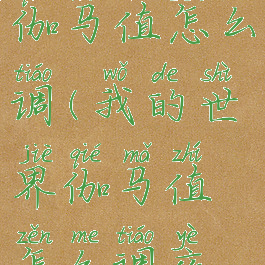 伽马值怎么
tiáo wǒ de shì
调(我的世
jiè qié mǎ zhí
界伽马值
zěn me tiáo yè
怎么调夜